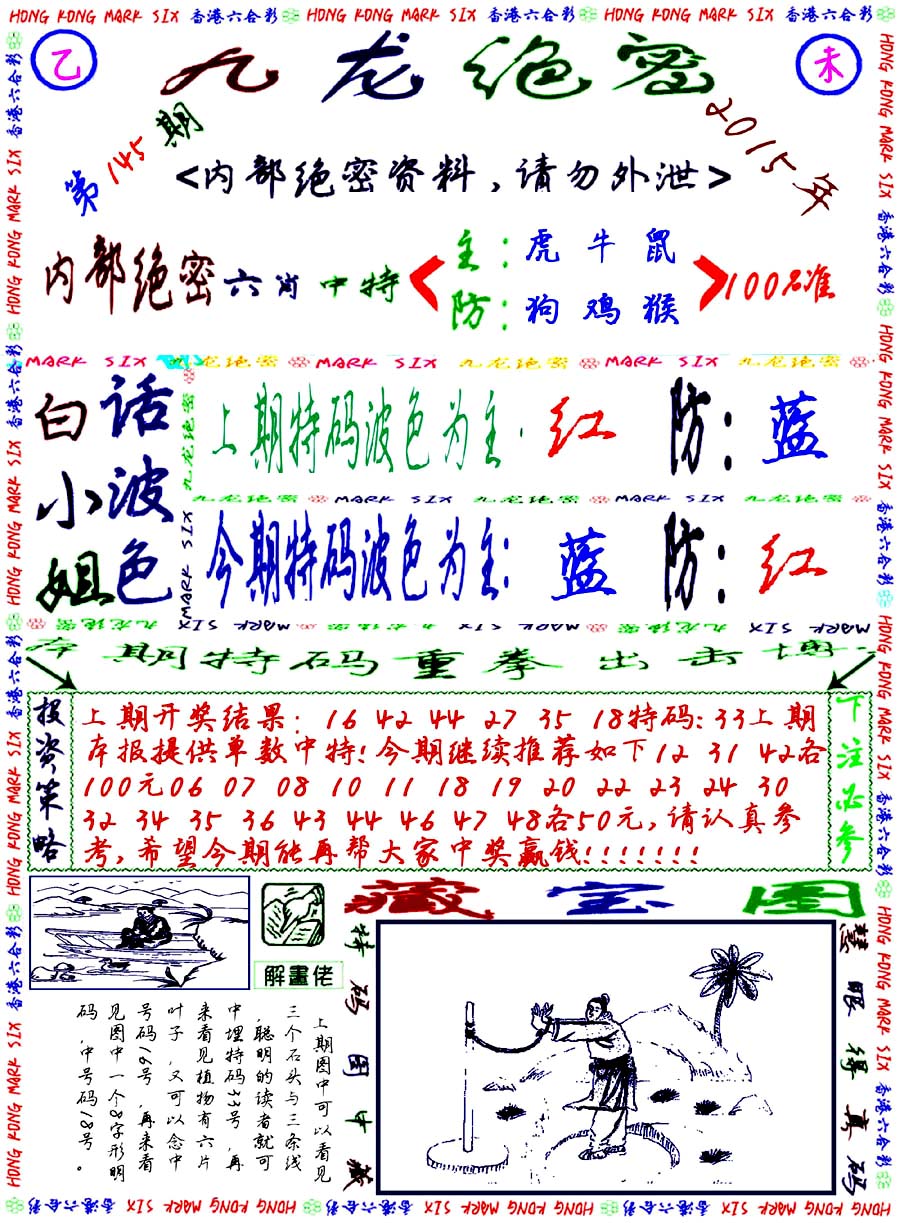 HONG KONG MARK SIX 香港六合彩 HONG KONG MARK SIX 香港六合彩 HONG KONG MARK SIX 香港六合彩
乙
九龙绝密
未
第145期
2015年
<内部绝密资料,请勿外泄>
内部绝密六肖中特
主:虎牛鼠
防:狗鸡猴
100%准
MARK SIX 九龙绝密 MARK SIX 九龙绝密 MARK SIX 九龙绝密
白话
小波
姐色
上期特码波色为主·红 防:蓝
九龙绝密 MARK SIX 九龙绝密 MARK SIX 九龙绝密
今期特码波色为主:蓝 防:红
期特码重拳出击
投资策略
上期开奖结果: 16 42 44 27 35 18特码:33上期
本报提供单数中特!今期继续推荐如下12 31 42各
100元06 07 08 10 11 18 19 20 22 23 24 30
32 34 35 36 43 44 46 47 48各50元,请认真参
考,希望今期能再帮大家中奖赢钱!!!!!!!
下注必参
藏宝图
解畫佬
特码图中藏
慧眼得真码
上期图中可以看见
三个石头与三条线
,聪明的读者就可
中埋特码33号,再
来看见植物有六片
叶子,又可以念中
号码16号,再来看
见图中一个8字形明
码,中号码18号。